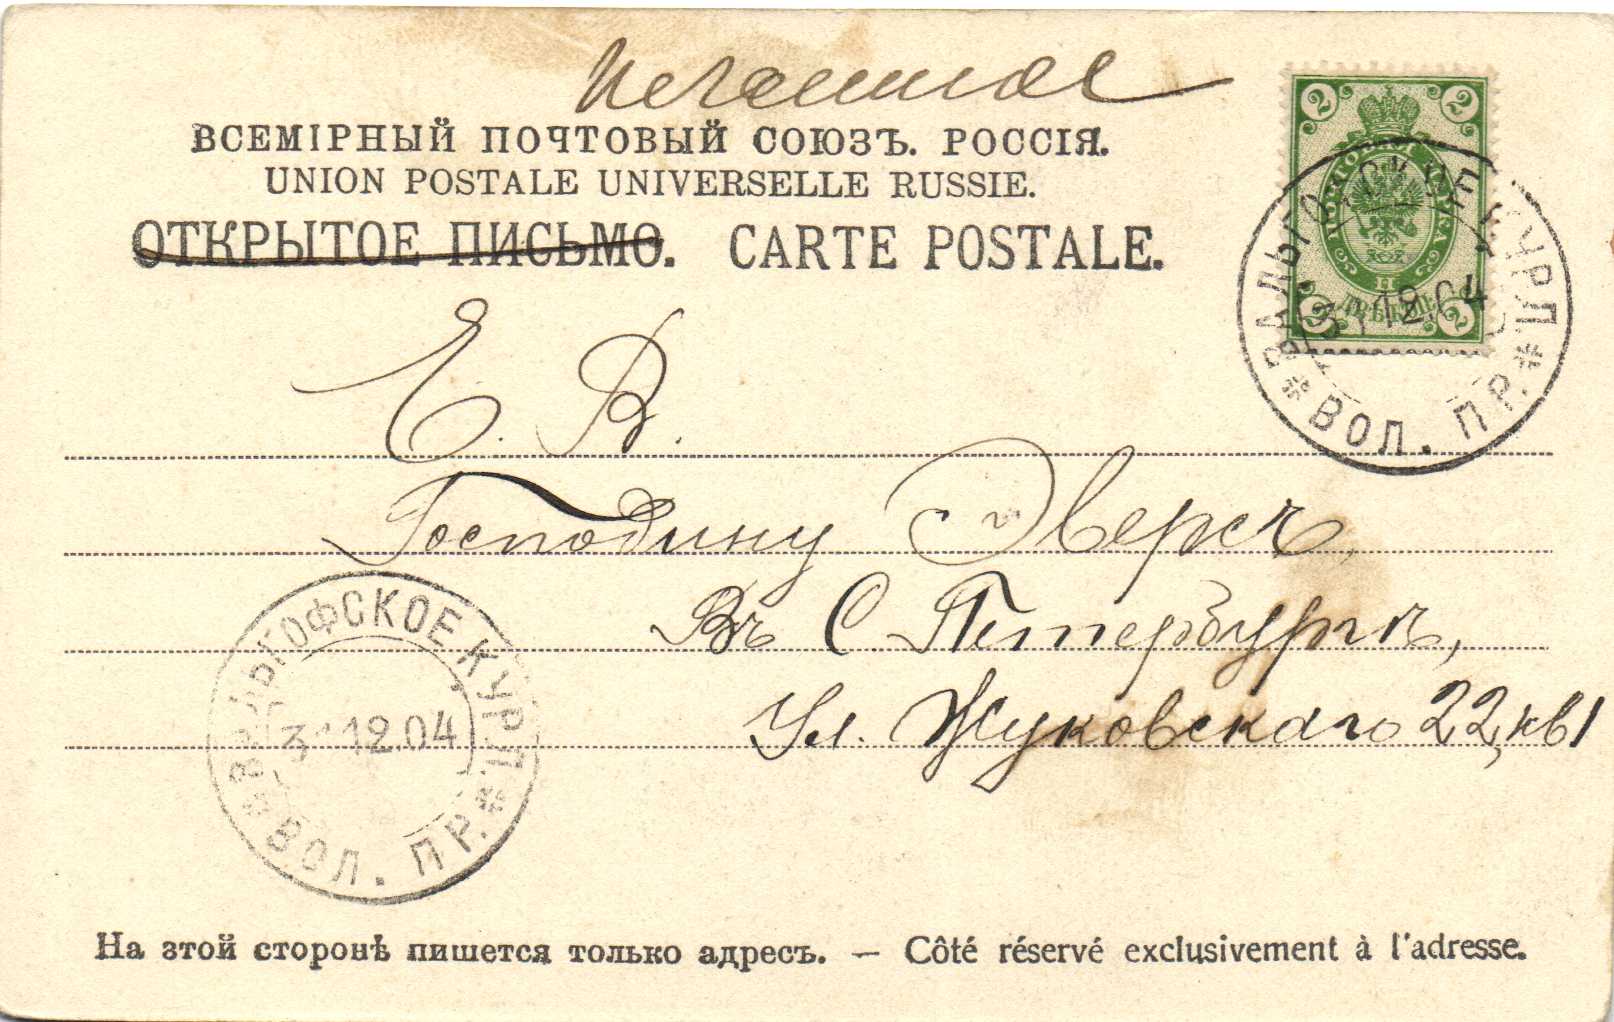 Печатное
ВСЕМІРНЫЙ ПОЧТОВЫЙ СОЮЗЪ. РОССІЯ.
UNION POSTALE UNIVERSELLE RUSSIE.
ОТКРЫТОЕ ПИСЬМО. CARTE POSTALE.
2 2
ПОЧТОВАЯ МАРКА
2 ДВѢ КОП. 2
КУРЛ.
31 12.04
* ВОЛ. ПР. *
Е. В.
Господину Эверсъ,
Въ С. Петербургъ,
Ул. Жуковскаго 22, кв 1
ВАЛЬГОФСКОЕ КУРЛ.
31 12.04
* ВОЛ. ПР. *
На этой сторонѣ пишется только адресъ. — Côté réservé exclusivement à l'adresse.